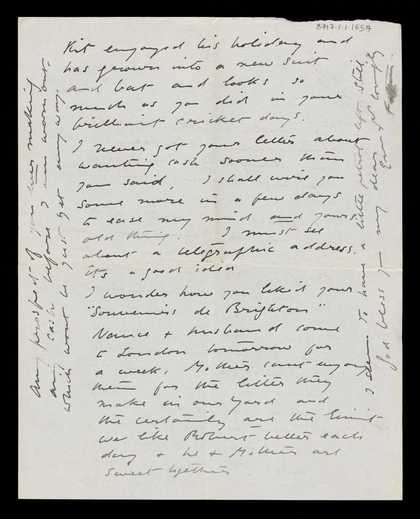 8717.1.1.1659
Kit enjoyed his holiday and
has grown into a new suit
and hat and looks so
much as you did in your
brilliant cricket days.
I never got your letter about
wanting cash sooner than
you said, I shall wire you
some more in a few days
to ease my mind and yours
old thing. I must see
about a telegraphic address.
its a good idea
I wonder how you like'd your
"Souvenirs de Brighton"
Nance & husband come
to London tomorrow for
a week. Mother can't enjoy
them for the litter they
make in our yard and
the certainly are the limit
we like Robert better each
day & he & Mother are
sweet together
I seem to have a little paper left still
God bless you my dear
Love & write
any prospect of you ever making
any cash before I am worn out.
which wont be just yet any way.